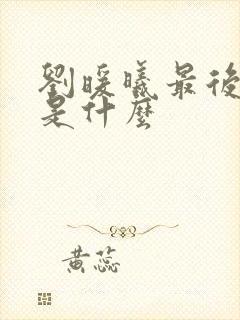 劉暖曦最後
是什麼
黄蕊